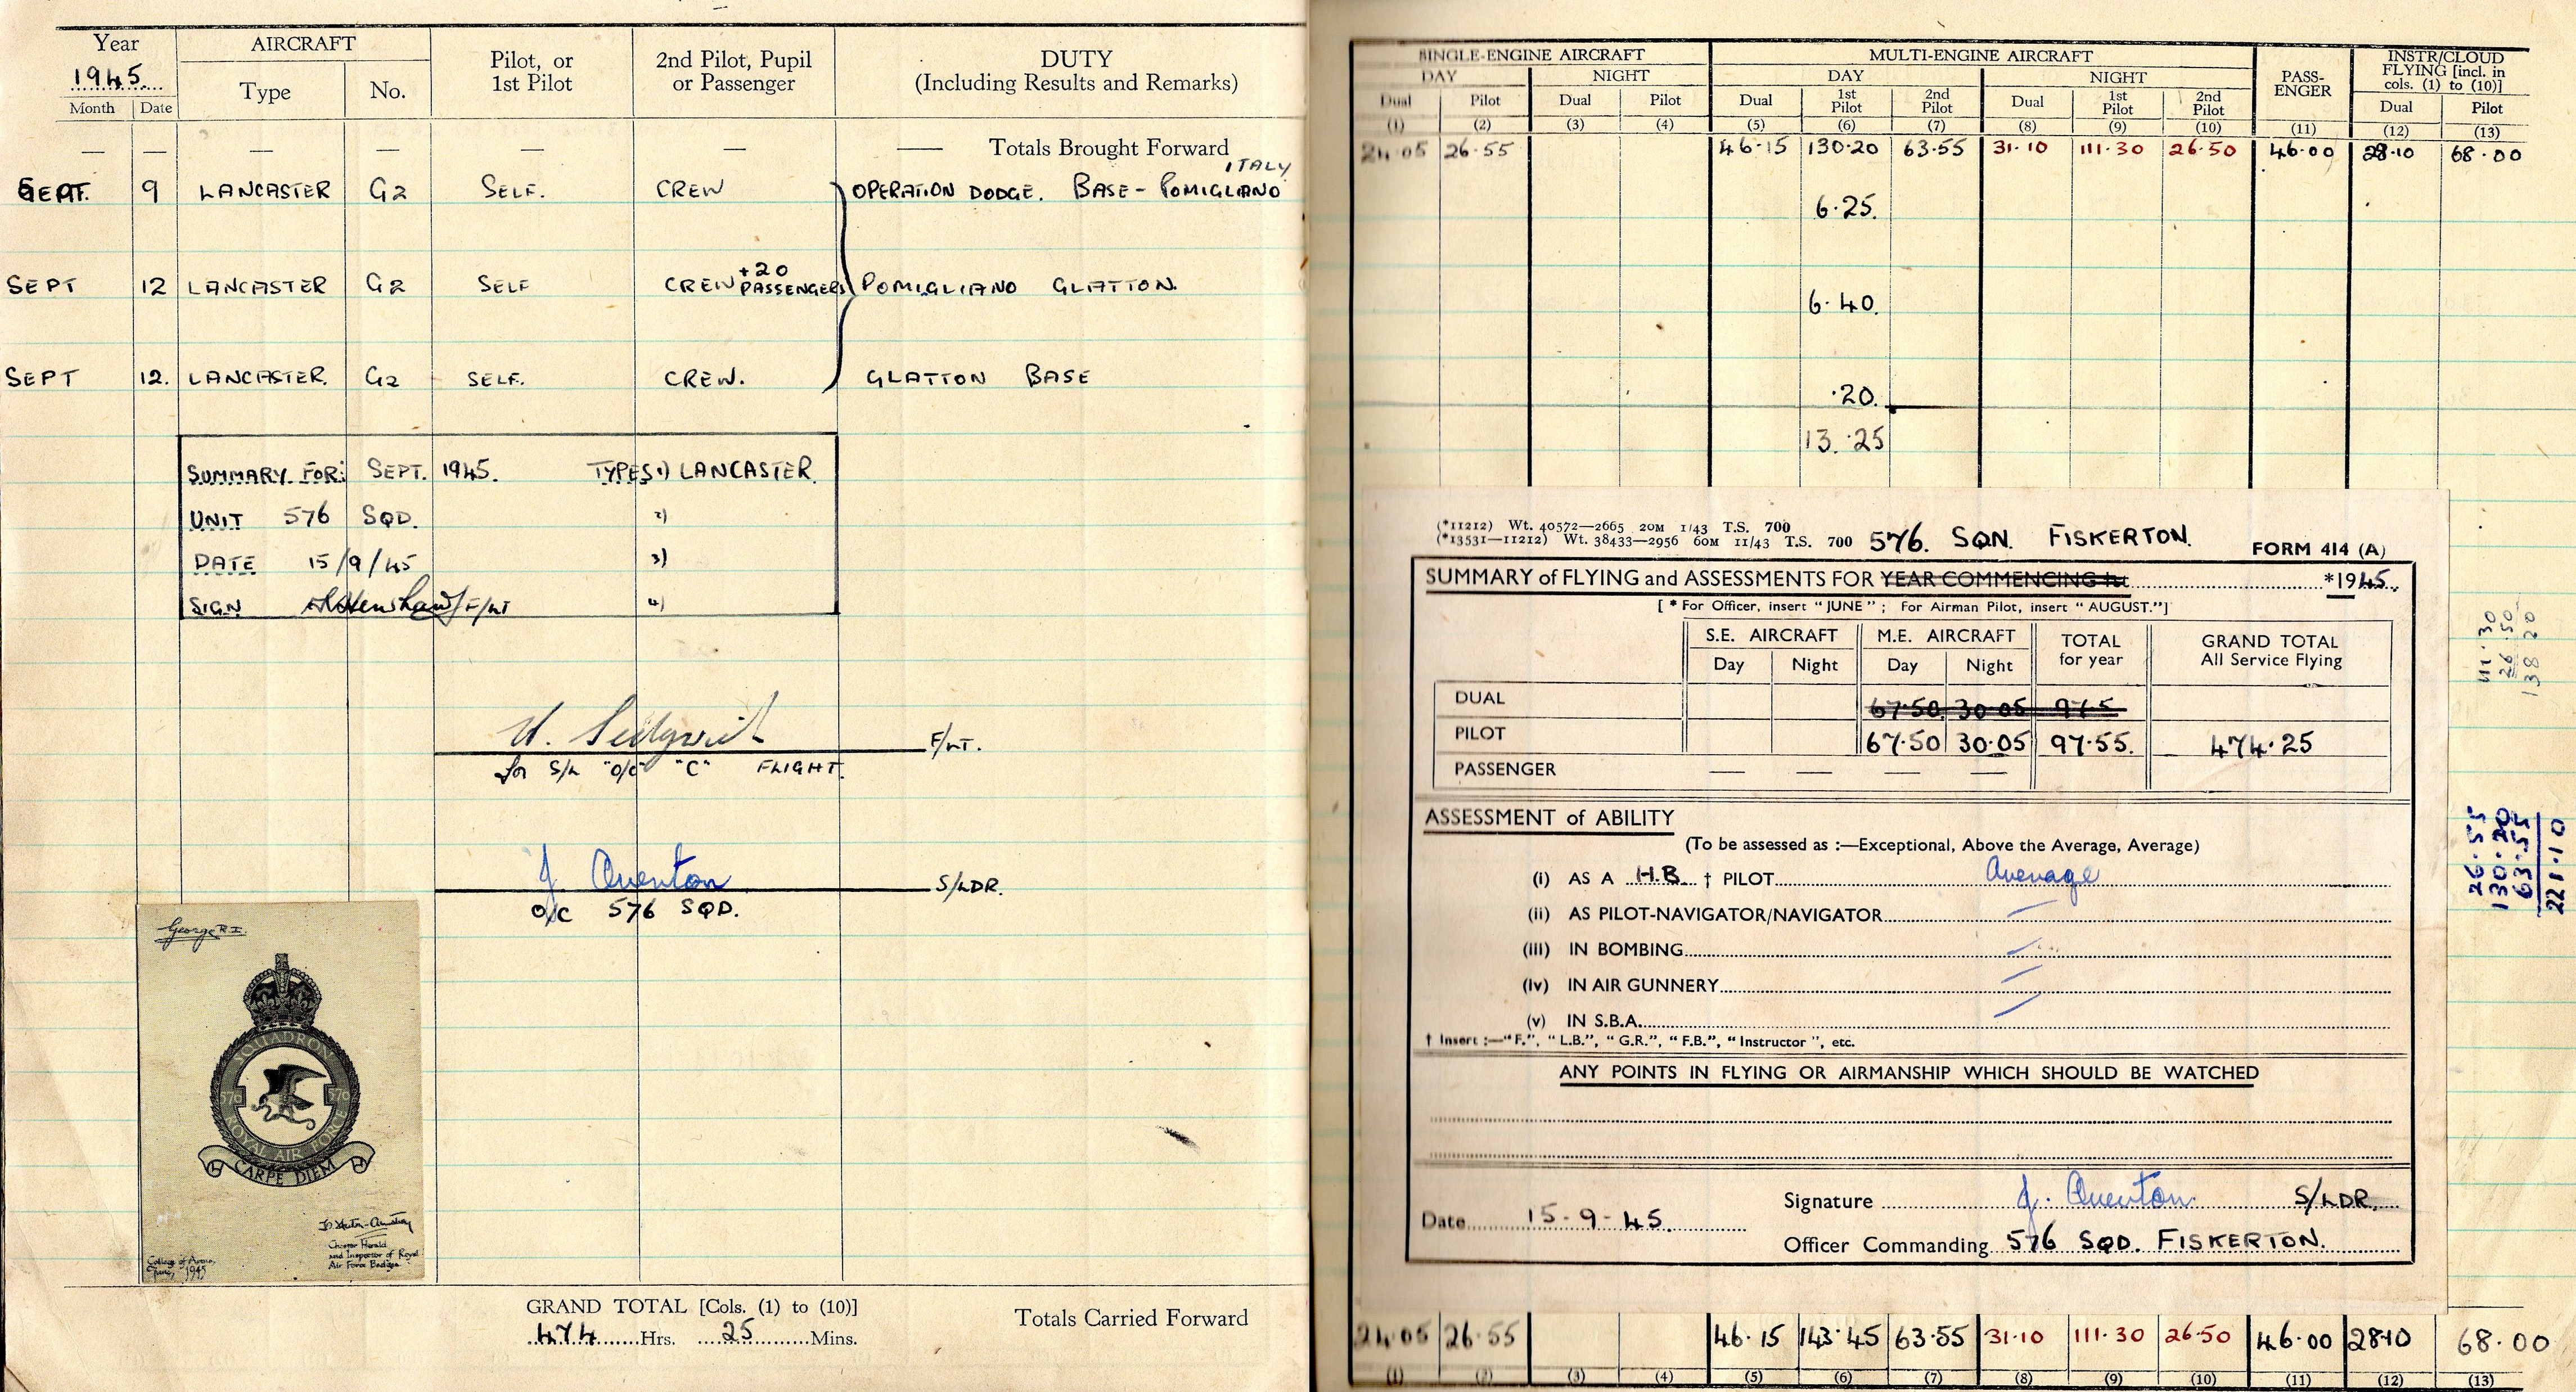 Year AIRCRAFT Pilot, or 1st Pilot 2nd Pilot, Pupil or Passenger DUTY (Including Results and Remarks)
1945. Type No.
Month Date
— — — — — — —— Totals Brought Forward
SEPT. 9 LANCASTER G2 SELF. CREW OPERATION DODGE. BASE - POMIGLIANO ITALY
SEPT 12 LANCASTER G2 SELF CREW +20 PASSENGERS POMIGLIANO GLATTON.
SEPT 12. LANCASTER. G2 SELF. CREW. GLATTON BASE
SUMMARY FOR: SEPT. 1945. TYPES 1) LANCASTER.
UNIT 576 SQD. 2)
DATE 15/9/45 3)
SIGN F/LT 4)
F/LT.
for S/L "O/C" "C" FLIGHT.
J. Quenton S/LDR.
O/C 576 SQD.
George R.I.
SQUADRON
576 576
ROYAL AIR FORCE
CARPE DIEM
Chester Herald
and Inspector of Royal
Air Force Badges
College of Arms,
June, 1945
GRAND TOTAL [Cols. (1) to (10)] Totals Carried Forward
474 Hrs. 25 Mins.
SINGLE-ENGINE AIRCRAFT MULTI-ENGINE AIRCRAFT PASS-ENGER INSTR/CLOUD FLYING [incl. in cols. (1) to (10)]
DAY NIGHT DAY NIGHT
Dual Pilot Dual Pilot Dual 1st Pilot 2nd Pilot Dual 1st Pilot 2nd Pilot Dual Pilot
(1) (2) (3) (4) (5) (6) (7) (8) (9) (10) (11) (12) (13)
24·05 26·55 46·15 130·20 63·55 31·10 111·30 26·50 46·00 28·10 68·00
6·25.
6·40.
·20.
13·25
(*11212) Wt. 40572—2665 20M 1/43 T.S. 700
(*13531—11212) Wt. 38433—2956 60M 11/43 T.S. 700 576. SQN. FISKERTON. FORM 414 (A)
SUMMARY of FLYING and ASSESSMENTS FOR YEAR COMMENCING 1st *1945.
[* For Officer, insert "JUNE"; For Airman Pilot, insert "AUGUST."]
S.E. AIRCRAFT M.E. AIRCRAFT TOTAL for year GRAND TOTAL All Service Flying
Day Night Day Night
DUAL 67·50 30·05 97·5
PILOT 67·50 30·05 97·55. 474·25
PASSENGER — — — —
ASSESSMENT of ABILITY
(To be assessed as :—Exceptional, Above the Average, Average)
(i) AS A H.B. † PILOT Average
(ii) AS PILOT-NAVIGATOR/NAVIGATOR
(iii) IN BOMBING
(iv) IN AIR GUNNERY
(v) IN S.B.A.
† Insert :—"F.", "L.B.", "G.R.", "F.B.", "Instructor", etc.
ANY POINTS IN FLYING OR AIRMANSHIP WHICH SHOULD BE WATCHED
Signature J. Quenton. S/LDR.
Date 15-9-45.
Officer Commanding 576 SQD. FISKERTON.
111·30
26·50
138 20
26·55
130·20
63·55
221·10
24·05 26·55 46·15 143·45 63·55 31·10 111·30 26·50 46·00 28·10 68·00
(1) (2) (3) (4) (5) (6) (7) (8) (9) (10) (11) (12) (13)